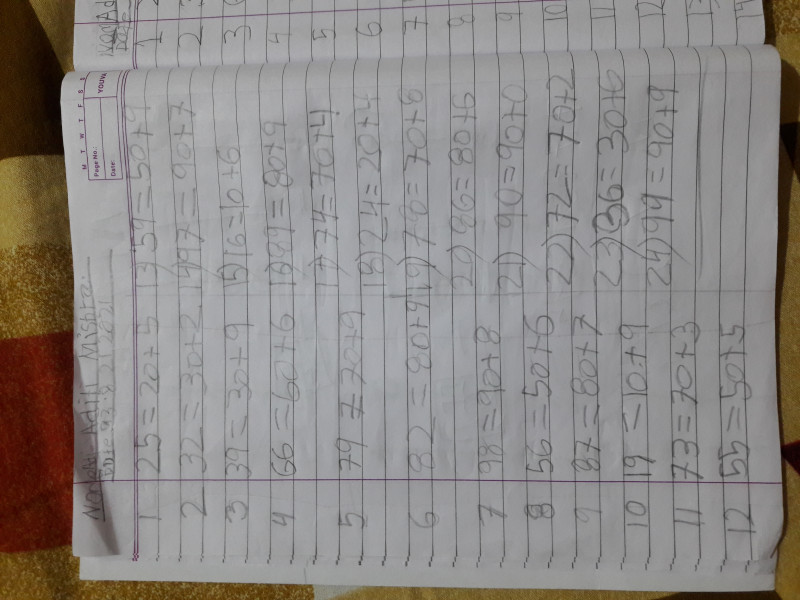 M T W T F S S
Page No.:
Date:
YOUVA
Mishra
1 25=20+5
2 32=30+2
3 39=30+9
4 66=60+6
5 79=70+9
6 82=
7 98=90+8
8 56=50+6
9 87=80+7
10 19=10+9
11 73=70+3
12 55=50+5
13) 59=50+9
14) 97=90+7
15) 16=10+6
16) 89=80+9
17) 74=70+4
18) 24=20+4
19) 78=70+8
20) 86=80+6
21) 90=90+0
22) 72=70+2
23) 36=30+6
24) 99=90+9
1
2
3
4
5
6
7
8
9
10
11
12
13
14